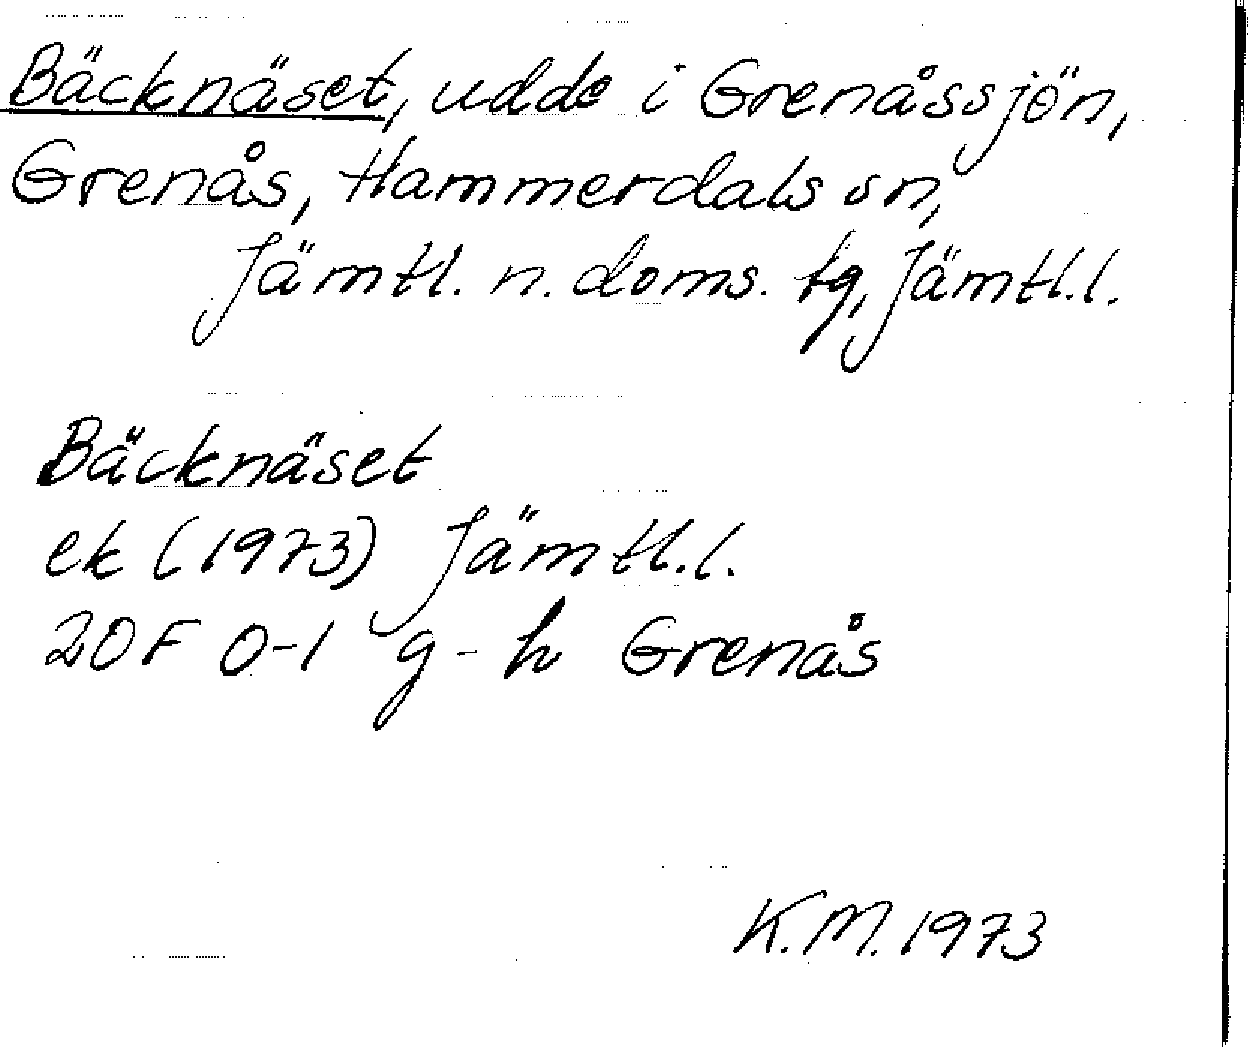 Bäcknäset, udde i Grenåssjön,
Grenås, Hammerdals sn,
Jämtl. n. doms. tg, Jämtl.l.
Bäcknäset
ek (1973) Jämtl.l.
20F 0-1 g-h Grenås
K.M. 1973